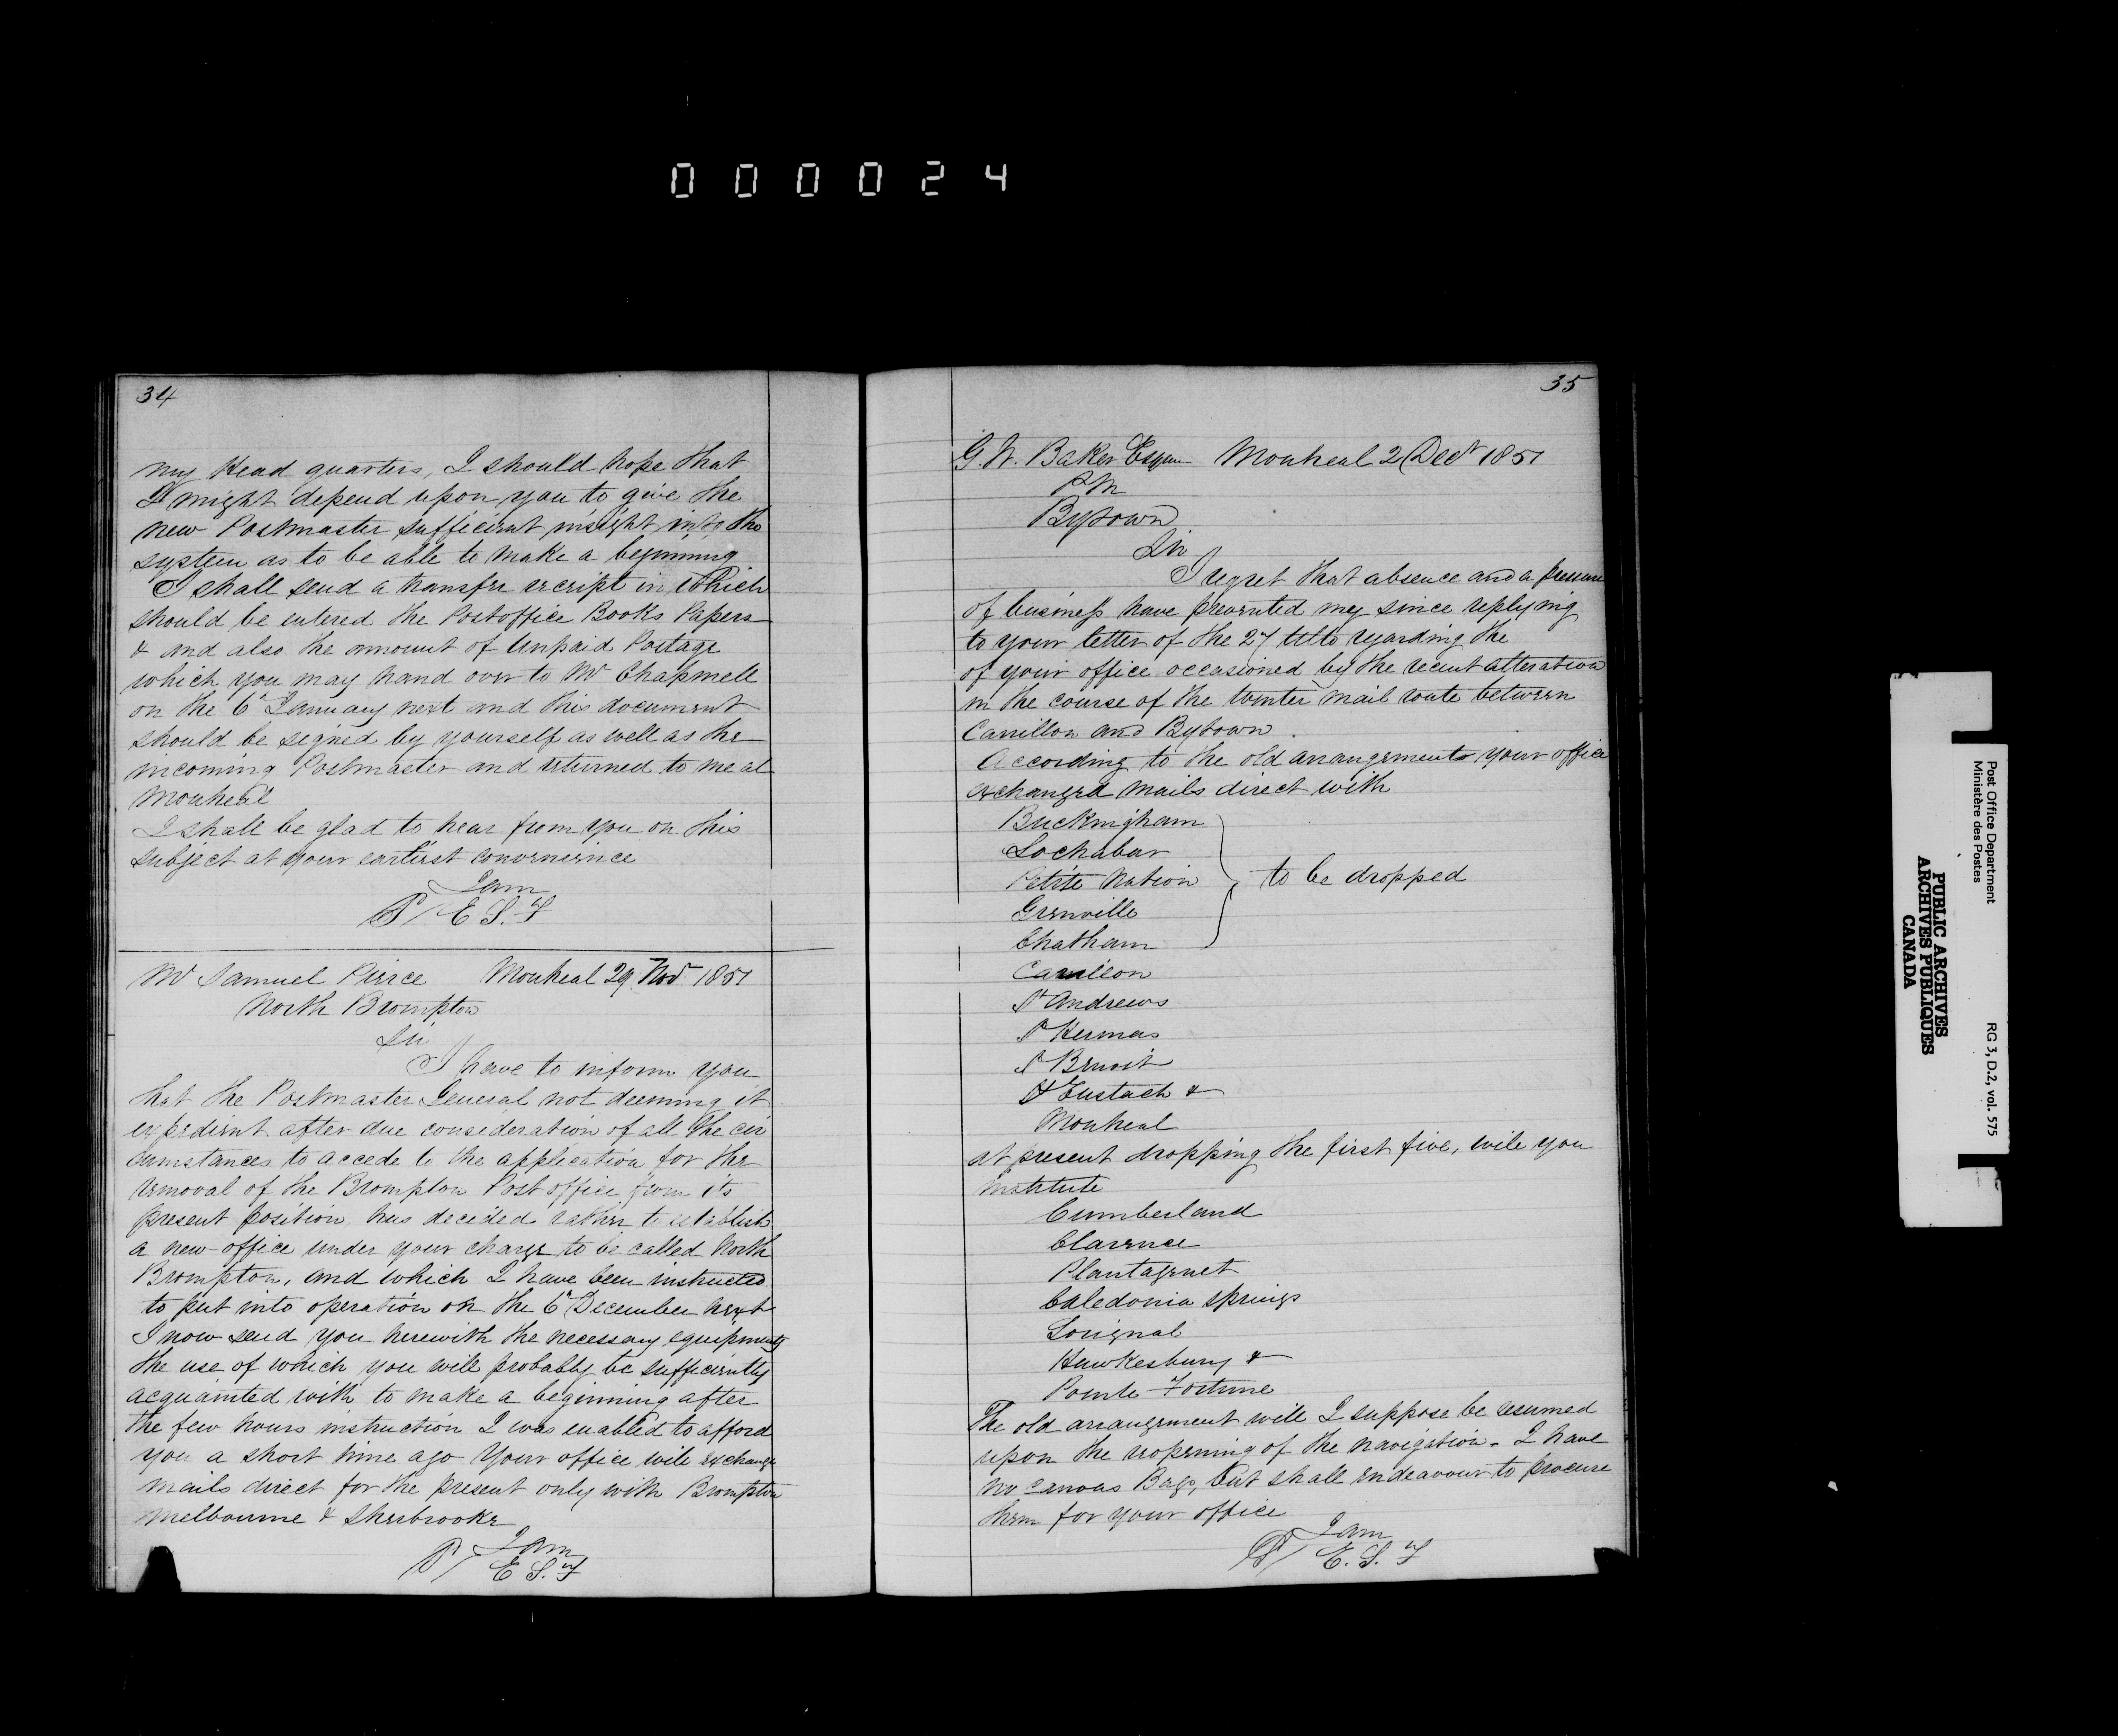 000024
34
my Head quarters, I should hope that
I might depend upon you to give the
new Postmaster sufficient insight into the
system as to be able to make a beginning
I shall send a transfer receipt in which
should be entered the Postoffice Books Papers
& and also the amount of Unpaid Postage
which you may hand over to Mr Chapmell
on the 6th January next and this document
should be signed by yourself as well as the
incoming Postmaster and returned to me at
Montreal
I shall be glad to hear from you on this
subject at your earliest convenience
I am
P/ E. S. F
Mr Samuel Pierce Montreal 29 Nov 1851
North Brompton
Sir
I have to inform you
that the Postmaster General not deeming it
expedient after due consideration of all the cir
cumstances to accede to the application for the
removal of the Brompton Post office from its
present position, has decided rather to establish
a new office under your charge to be called North
Brompton, and which I have been instructed
to put into operation on the 6th December next
I now send you herewith the necessary equipments
the use of which you will probably be sufficiently
acquainted with to make a beginning after
the few hours instruction I was enabled to afford
you a short time ago Your office will exchange
mails direct for the present only with Brompton
Melbourne & Sherbrooke
I am
P/ E. S. F
35
G. W. Baker Esqre Montreal 2 Decr 1851
PM
Bytown
Sir
I regret that absence and a pressure
of business have prevented my since replying
to your letter of the 27 ulto regarding the
of your office occasioned by the recent alteration
in the course of the Winter mail route between
Carillon and Bytown.
According to the old arrangements your office
exchanged mails direct with
Buckingham
Lochaber
Petite Nation to be dropped
Grenville
Chatham
Carillon
St Andrews
St Hermas
St Benoit
St Eustach &
Montreal
at present dropping the first five, will you
institute
Cumberland
Clarence
Plantagenet
Caledonia Springs
Lorignal
Hawkesbury &
Pointe Fortune
The old arrangement will I suppose be resumed
upon the reopening of the navigation. I have
no canvas Bags, but shall endeavour to procure
them for your office
I am
P/ E. S. F
Post Office Department
Ministère des Postes
RG 3, D.2, vol. 575
PUBLIC ARCHIVES
ARCHIVES PUBLIQUES
CANADA